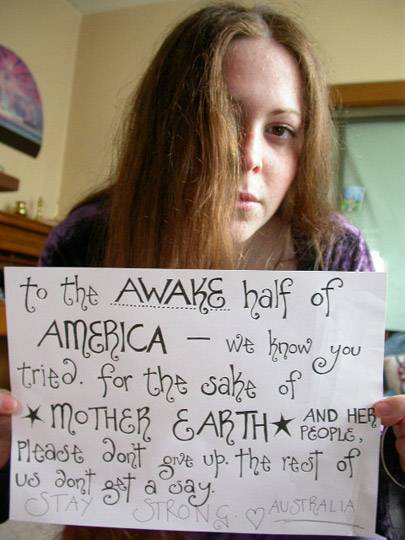 to the AWAKE half of
AMERICA — we know you
tried. for the sake of
★ MOTHER EARTH ★ AND HER
PEOPLE,
please don't give up. the rest of
us don't get a say.
STAY STRONG. ♡ AUSTRALIA